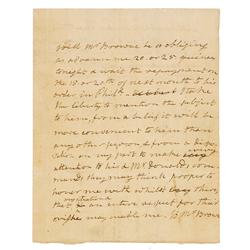 Will Mr Browne be so obliging
as advance me 20. or 25 guineas
to night & wait the repayment on
the 15 or 20th of next month & his
order in Phila. I take
the liberty to mention the subject
to him, from a belief it will be
more convenient to him than
any other person, & from a dispo-
sition on my part to make every
attention to his & Mr. McDonalds com-
mands they may think proper to
honor me with whilst they there,
that an entire respect for their
may enable me. To Mr Browne